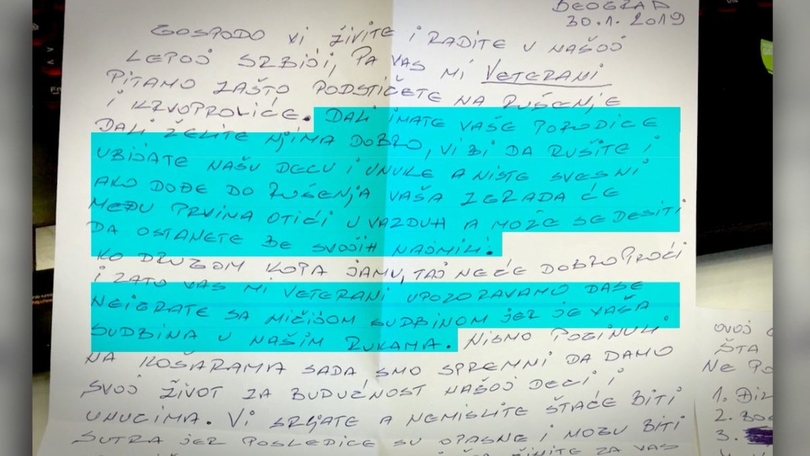 BEOGRAD
30.1.2019
GOSPODO VI ŽIVITE I RADITE U NAŠOJ
LEPOJ SRBIJI, PA VAS MI VETERANI
PITAMO ZAŠTO PODSTIČETE NA RUŠENJE
I KRVOPROLIĆE. DALI IMATE VAŠE PORODICE
DALI ŽELITE NJIMA DOBRO, VI BI DA RUŠITE I
UBIJATE NAŠU DECU I UNUKE A NISTE SVESNI
AKO DOĐE DO RUŠENJA VAŠA ZGRADA ĆE
MEĐU PRVIMA OTIĆI U VAZDUH A MOŽE SE DESITI
DA OSTANETE BE SVOJIH NAJMILI.
KO DRUGOM KOPA JAMU, TAJ NEĆE DOBRO PROĆI
I ZATO VAS MI VETERANI UPOZORAVAMO DASE
NEIGRATE SA NIČIJOM SUDBINOM JER JE VAŠA
SUDBINA U NAŠIM RUKAMA. NISMO POGINULI
NA KOŠARAMA SADA SMO SPREMNI DA DAMO
SVOJ ŽIVOT ZA BUDUĆNOST NAŠOJ DECI I
UNUCIMA. VI SRLJATE A NEMISLITE ŠTAĆE BITI
SUTRA JER POSLEDICE SU OPASNE I MOGU BITI
ZA VAS
OVOJ
ŠTA
NE PO
1.
2.
3.